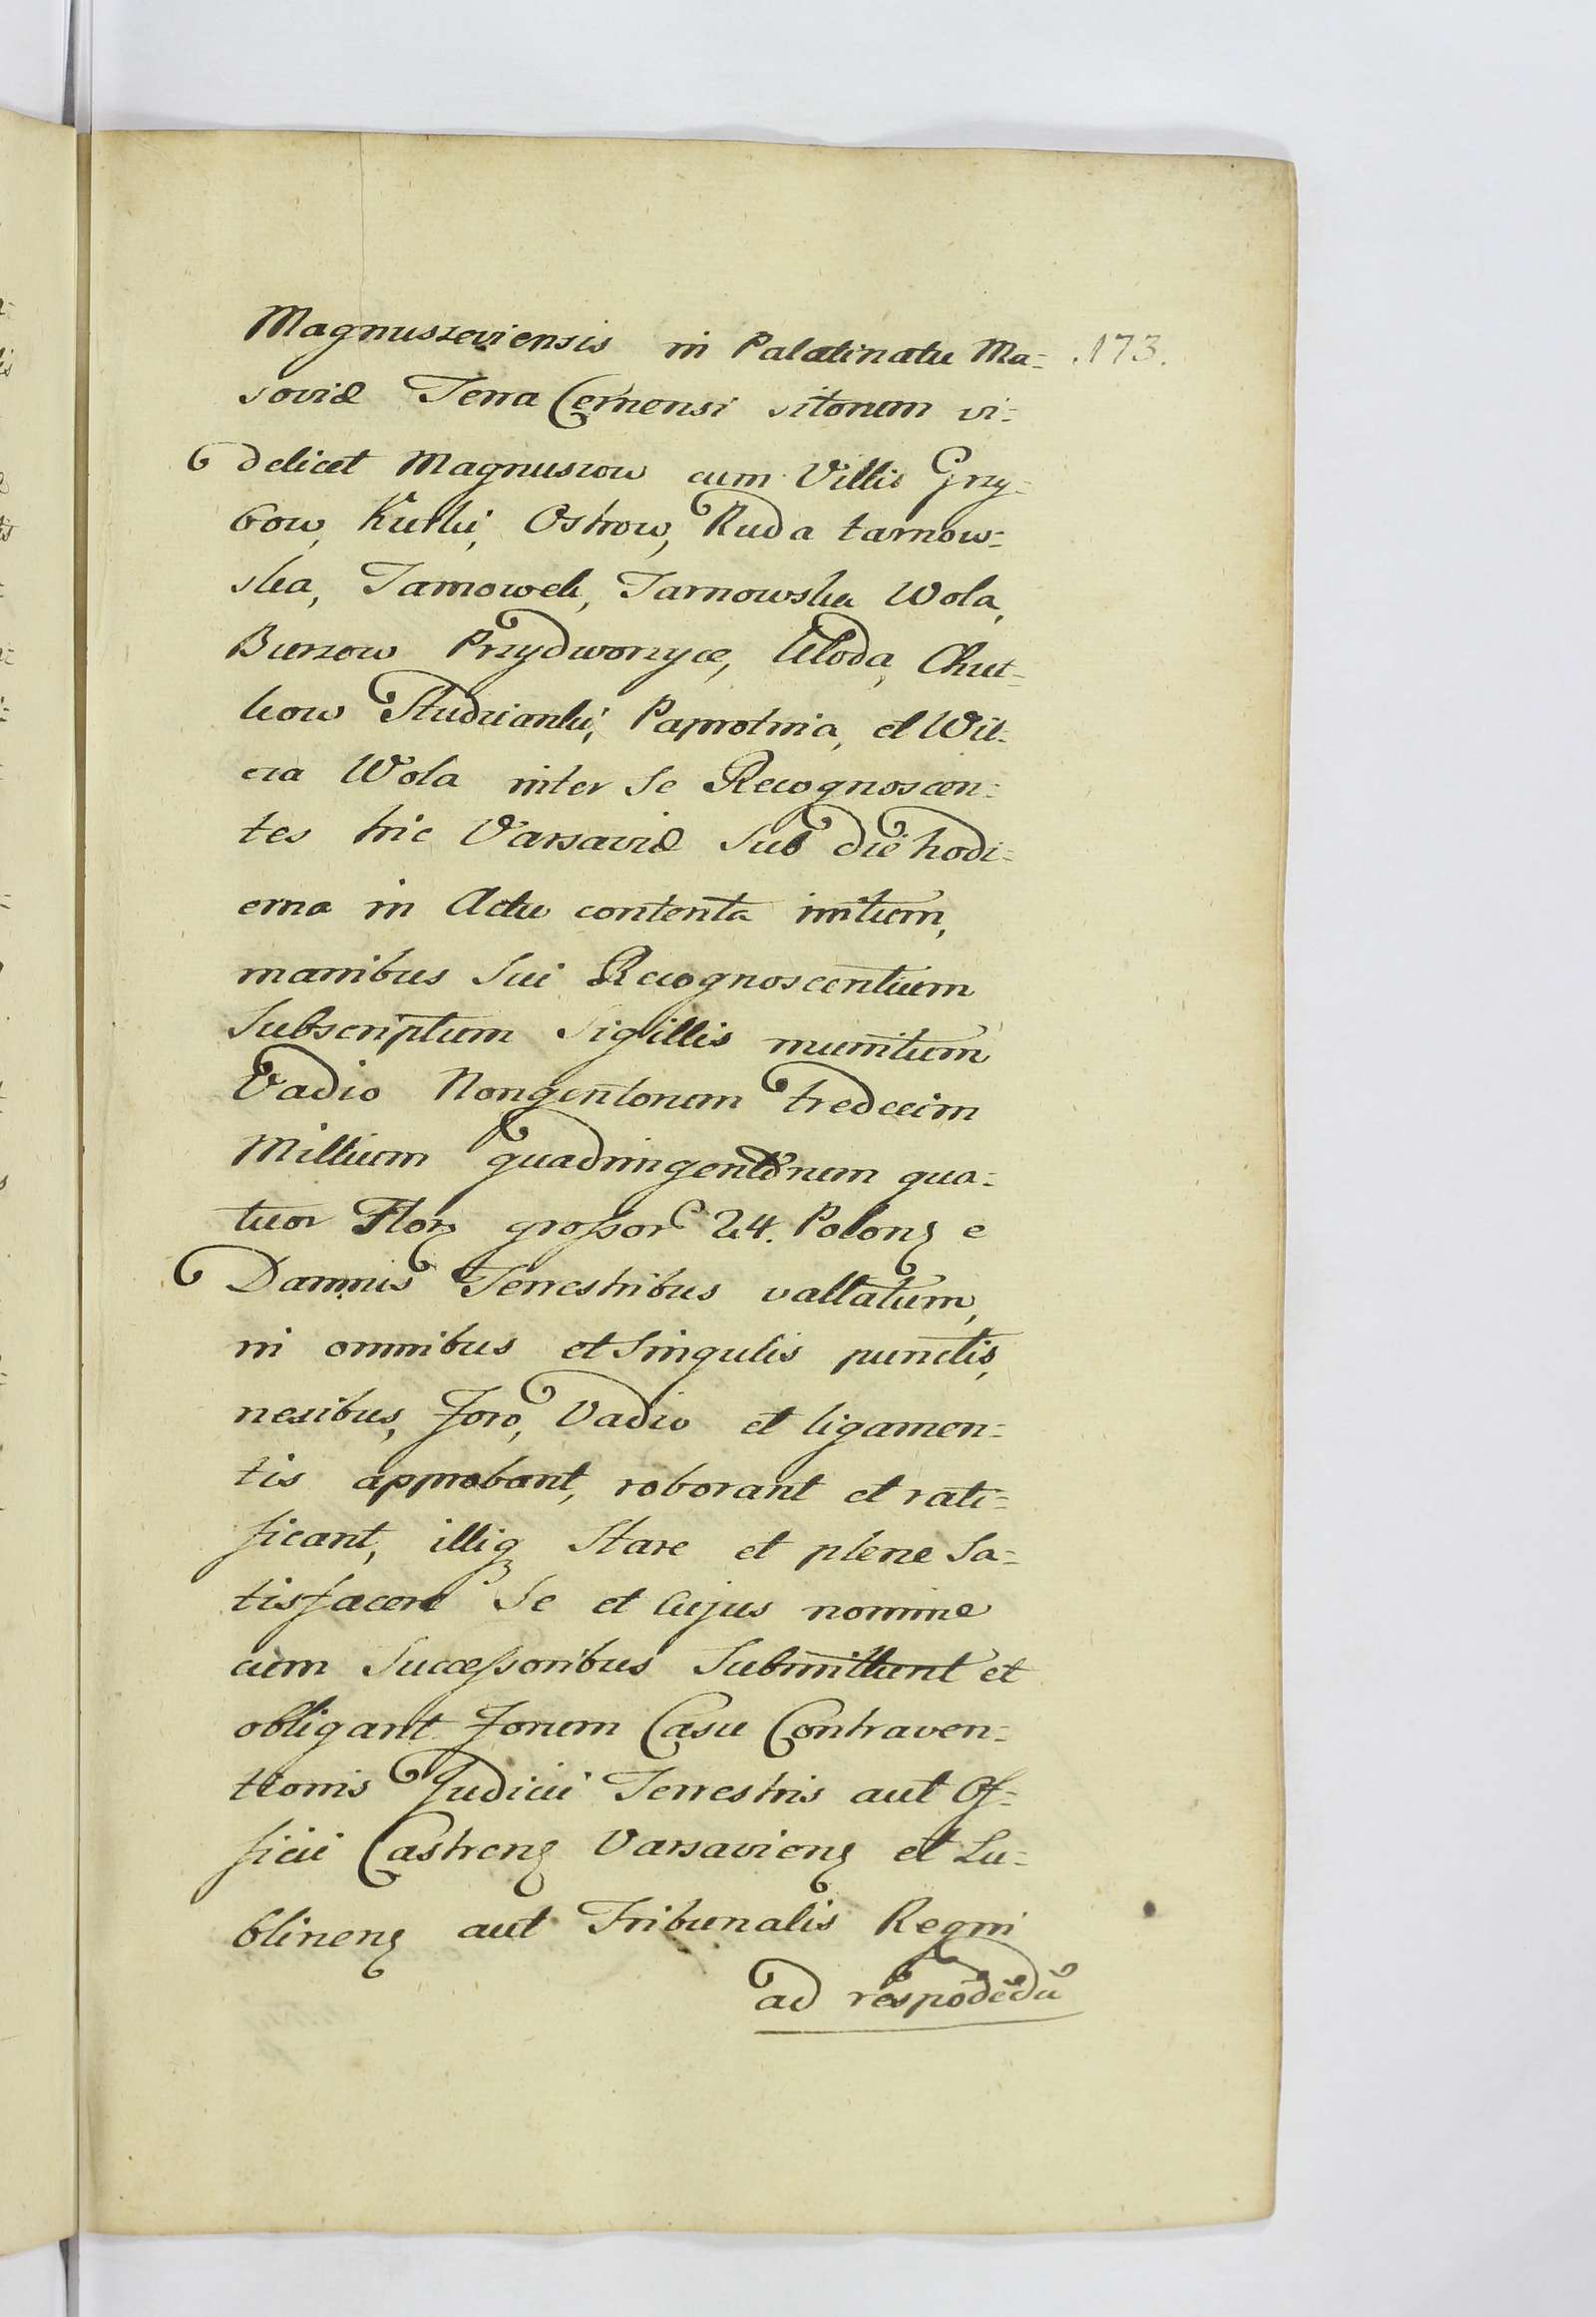 Magnuszeviensis in Palatinatu Ma= .173.
soviæ Terra Cernensi sitorum vi=
delicet Magnuszow cum Villis Grzy=
bow, Kurki, Ostrow, Ruda tarnow=
ska, Tarnowek, Tarnowska Wola,
Burzow Przydworzyce, Kłoda, Chut=
kow Studzianki, Paprotnia, et Wil=
cza Wola inter se Recognoscen=
tes hic Varsaviæ Sub die hodi=
erna in Actu contenta initum,
manibus Sui Recognoscentium
Subscriptum Sigillis munitum
Vadio Nongentorum tredecim
Millium quadringentorum qua=
tuor Flor. grossor 24. Polon. e
Damnis Terrestribus vallatum,
in omnibus et Singulis punctis,
nexibus, Foro, Vadio et ligamen=
tis approbant, roborant et rati=
ficant, illiq. Stare et plene Sa=
tisfacere Se et Cujus nomine
cum Successoribus Submittunt et
obligant Forum Casu Contraven=
tionis Judicii Terrestris aut Of=
ficii Castren. Varsavien. et Lu=
blinen. aut Tribunalis Regni
ad respōdēdū